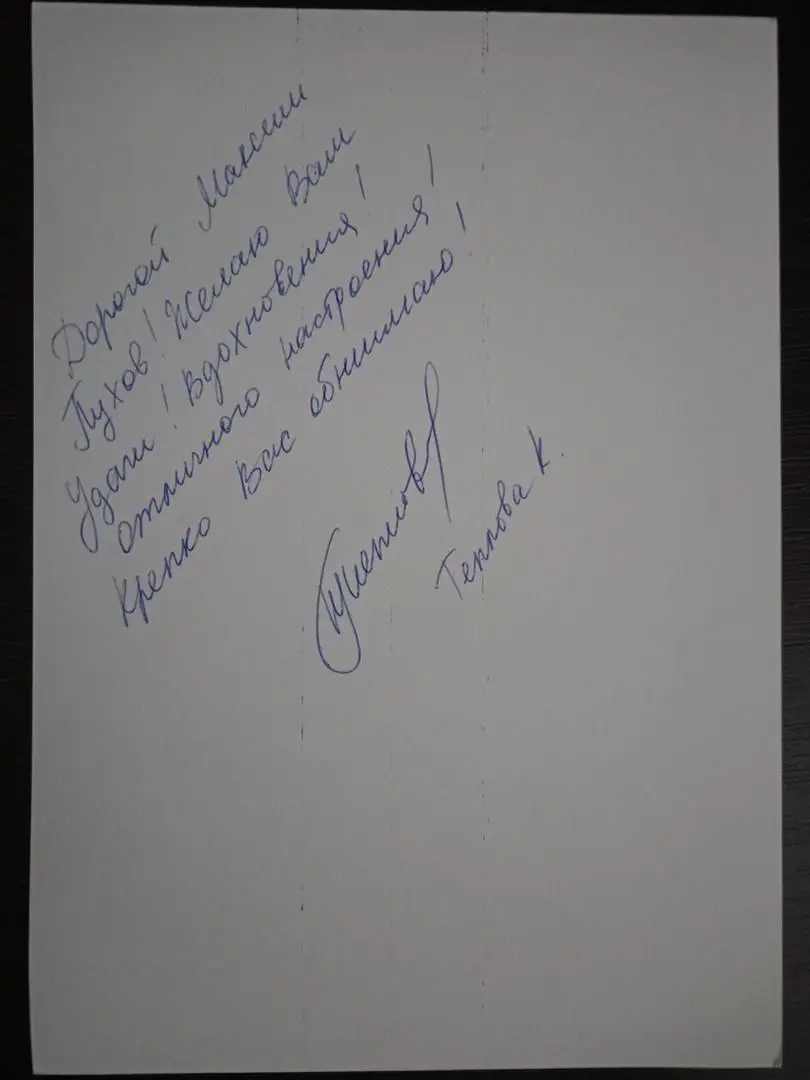 Дорогой Максим
Пухов! Желаю Вам
Удачи! Вдохновения!
отличного настроения!
Крепко Вас обнимаю!
Теплова К.